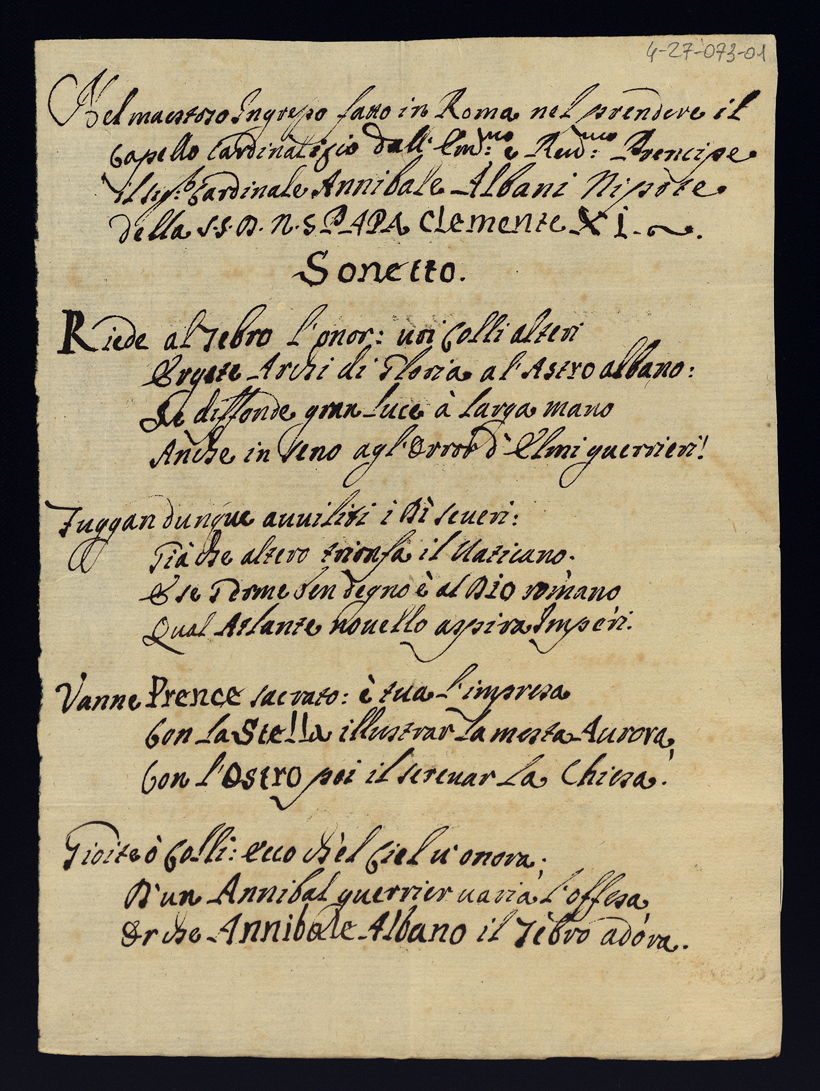 4-27-073-01
Nel maestoso Ingresso fatto in Roma nel prendere il
Capello Cardinalizio dall' Em:mo e Reud:mo Prencipe
il sig.r Cardinale Annibale Albani Nipote
della S.S. D. N. S PAPA Clemente XI.
Sonetto.
Riede al Tebro l'onor: uoi Colli alteri
Ergete Archi di Gloria al' Astro albano:
Se diffonde gran luce à larga mano
Anche in seno agl'Orror d'Elmi guerrieri!
Fuggan dunque auuiliti i Dì seueri:
Già che altero trionfa il Vaticano.
E se ben degno è al Dio romano
Qual Atlante nouello aspira Imperi.
Vanne Prence sacrato: è tua l'impresa
Con la Stella illustrar la mesta Aurora,
Con l'Ostro poi il serenar la Chiesa.
Gioite ò Colli: ecco ch'el Ciel u'onora.
D'un Annibal guerrier uaria l'offesa
Or che Annibale Albano il Tebro adora.